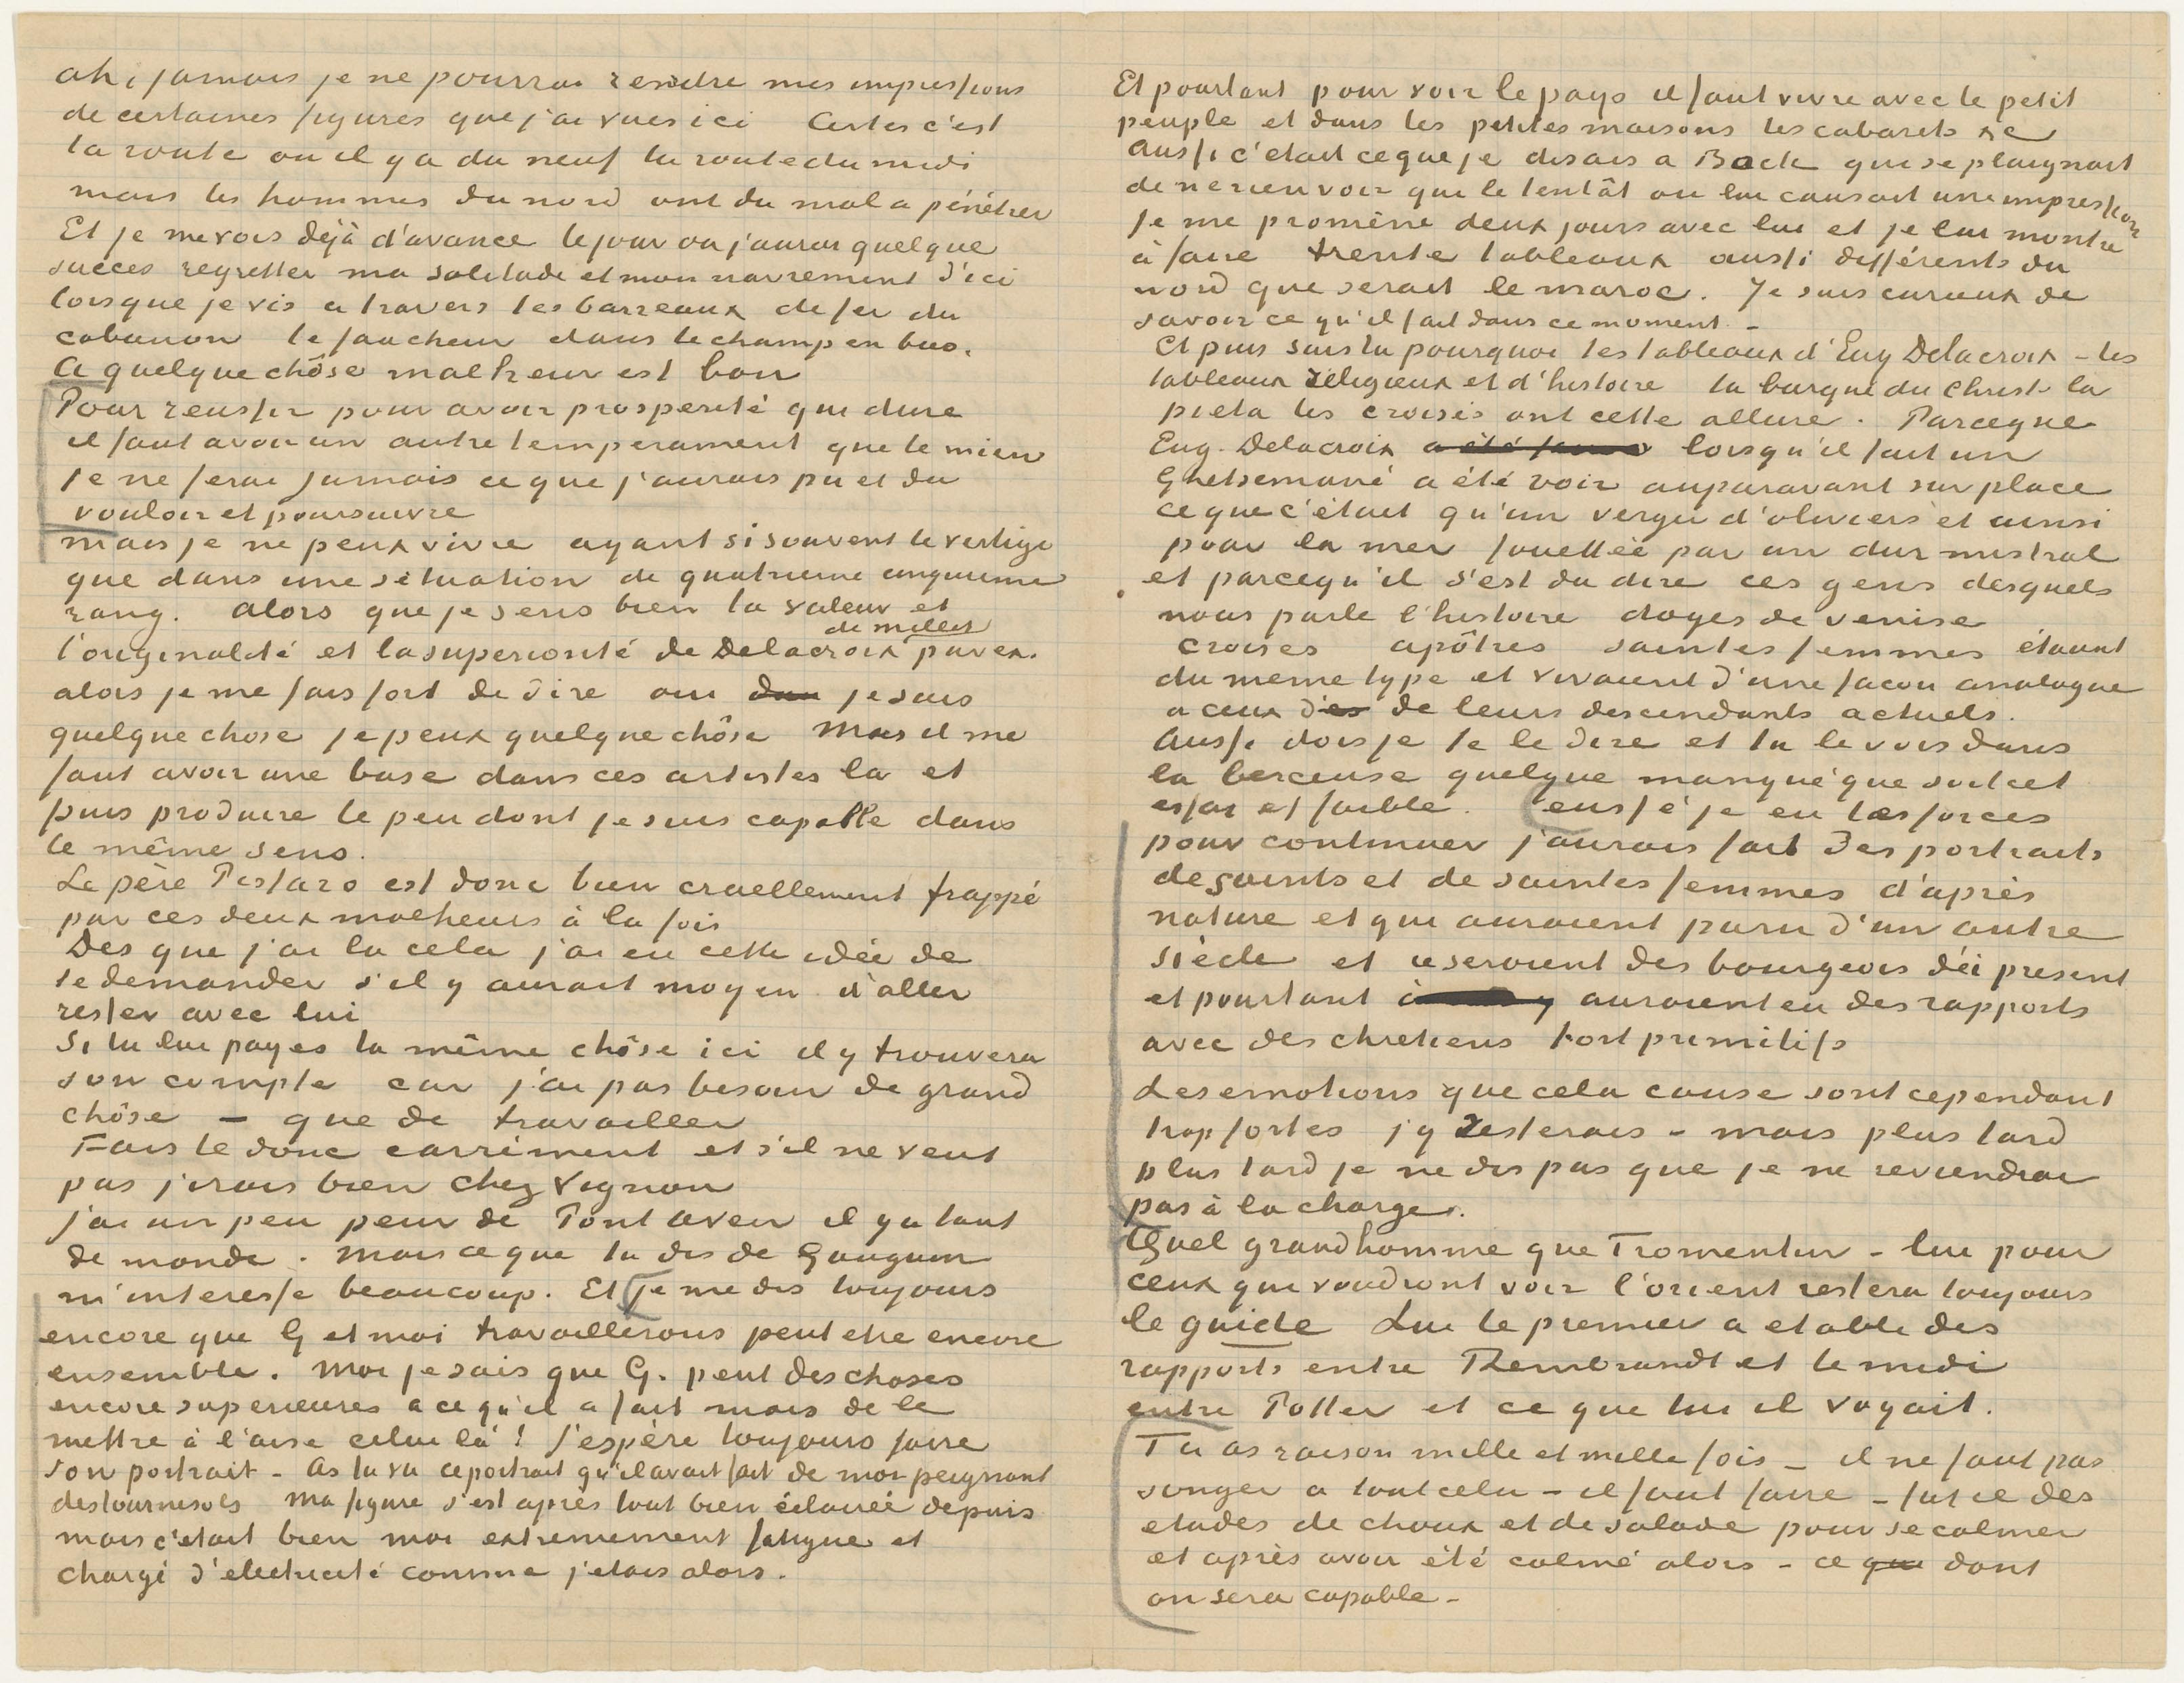 ah, jamais je ne pourrai rendre mes impressions
de certaines figures que j'ai vues ici Certes c'est
la route ou il y a du neuf la route du midi
mais les hommes du nord ont du mal a pénétrer
Et je me vois déjà d'avance le jour ou j'aurai quelque
succes regretter ma solitude et mon navrement d'ici
lorsque je vis a travers les barreaux de fer du
cabanon le faucheur dans le champ en bas.
A quelque chôse malheur est bon
Pour reussir pour avoir prosperité qui dure
il faut avoir un autre temperament que le mien
je ne ferai jamais ce que j'aurais pu et du
vouloir et poursuivre
mais je ne peux vivre ayant si souvent le vertige
que dans une situation de quatrieme cinquieme
rang. Alors que je sens bien la valeur et
l'originalité et la superiorité de Delacroix de millet par ex.
alors je me fais fort de dire oui je suis
quelque chose je peux quelque chôse Mais il me
faut avoir une base dans ces artistes la et
puis produire le peu dont je suis capable dans
le même sens.
Le père Pissaro est donc bien cruellement frappé
par ces deux malheurs à la fois
Des que j'ai lu cela j'ai eu cette idée de
te demander s'il y aurait moyen d'aller
rester avec lui
Si tu lui payes la même chôse ici il y trouvera
son compte car j'ai pas besoin de grand
chôse – que de travailler
Fais le donc carrément et s'il ne veut
pas j'irais bien chez Vignon
j'ai un peu peur de Pont Aven il y a tant
de monde. Mais ce que tu dis de Gauguin
m'interesse beaucoup. Et je me dis toujours
encore que G et moi travaillerons peut etre encore
ensemble. Moi je sais que G. peut des choses
encore superieures a ce qu'il a fait mais de le
mettre à l'aise celui là! J'espère toujours faire
son portrait – As tu vu ce portrait qu'il avait fait de moi peignant
des tournesols Ma figure s'est après tout bien éclairée depuis
mais c'etait bien moi extremement fatigué et
chargé d'electricité comme j'etais alors.
Et pourtant pour voir le pays il faut vivre avec le petit
peuple et dans les petites maisons les cabarets &c
Aussi c'etait ce que je disais a Bock qui se plaignait
de ne rien voir qui le tentât ou lui causait une impression
Je me promène deux jours avec lui et je lui montre
à faire trente tableaux aussi différents du
nord que serait le maroc. Je suis curieux de
savoir ce qu'il fait dans ce moment. –
Et puis sais tu pourquoi les tableaux d'Eug Delacroix – les
tableaux religieux et d'histoire la barque du Christ – la
pieta les croisés ont cette allure. Parceque
Eug. Delacroix a été lorsqu'il fait un
Ghetsemané a été voir auparavant sur place
ce que c'était qu'un verger d'oliviers et ainsi
pour la mer fouettée par un dur mistral
et parcequ'il s'est du dire ces gens desquels
nous parle l'histoire doges de venise
croisés apôtres saintes femmes étaient
du meme type et vivaient d'une facon analogue
a ceux des de leurs descendants actuels.
Aussi dois je te le dire et tu le vois dans
la berceuse quelque manqué que soit cet
essai et faible. Eusse je eu les forces
pour continuer j'aurais fait des portraits
de saints et de saintes femmes d'après
nature et qui auraient paru d'un autre
siècle et ce seraient des bourgeois d'à present
et pourtant auraient eu des rapports
avec des chretiens fort primitifs
Les emotions que cela cause sont cependant
trop fortes j'y resterais – mais plus tard
plus tard je ne dis pas que je ne reviendrai
pas à la charge.
Quel grand homme que Fromentin – lui pour
ceux qui voudront voir l'orient restera toujours
le guide Lui le premier a etabli des
rapports entre Rembrandt et le midi
entre Potter et ce que lui il voyait.
Tu as raison mille et mille fois – il ne faut pas
songer a tout cela – il faut faire – fut ce des
etudes de choux et de salade pour se calmer
et après avoir été calmé alors – ce que dont
on sera capable –